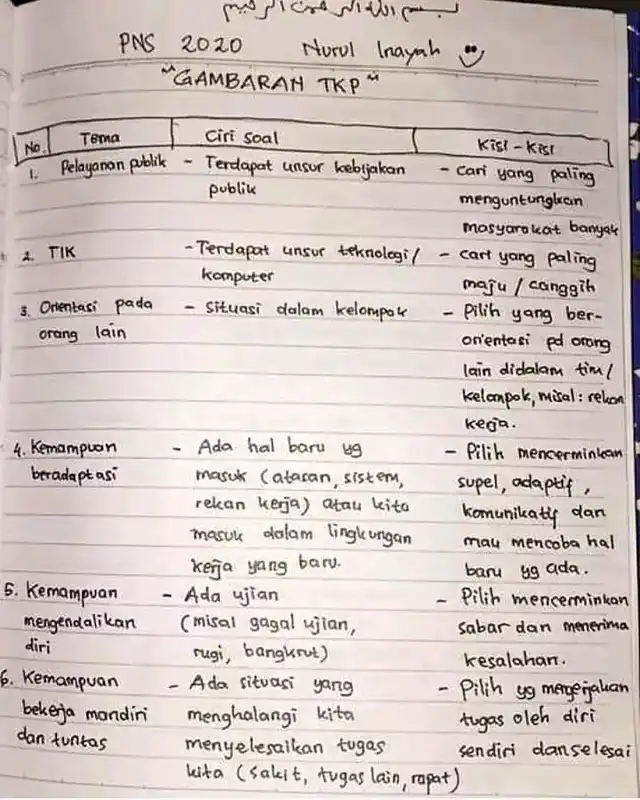 بسم الله الرحمن الرحيم
PNS 2020 Nurul Inayah
"GAMBARAN TKP"
No. Tema Ciri Soal Kisi - Kisi
1. Pelayanan publik - Terdapat unsur kebijakan - Cari yang paling
publik menguntungkan
masyarakat banyak
2. TIK - Terdapat unsur teknologi/ - cari yang paling
komputer maju / canggih
3. Orientasi pada - Situasi dalam kelompok - Pilih yang ber-
orang lain orientasi pd orang
lain didalam tim/
kelompok, misal : rekan
kerja.
4. Kemampuan - Ada hal baru yg - Pilih mencerminkan
beradaptasi masuk (atasan, sistem, supel, adaptif,
rekan kerja) atau kita komunikatif dan
masuk dalam lingkungan mau mencoba hal
kerja yang baru. baru yg ada.
5. Kemampuan - Ada ujian - Pilih mencerminkan
mengendalikan (misal gagal ujian, sabar dan menerima
diri rugi, bangkrut) kesalahan.
6. Kemampuan - Ada situasi yang - Pilih yg mengerjakan
bekerja mandiri menghalangi kita tugas oleh diri
dan tuntas menyelesaikan tugas sendiri dan selesai
kita (sakit, tugas lain, rapat)